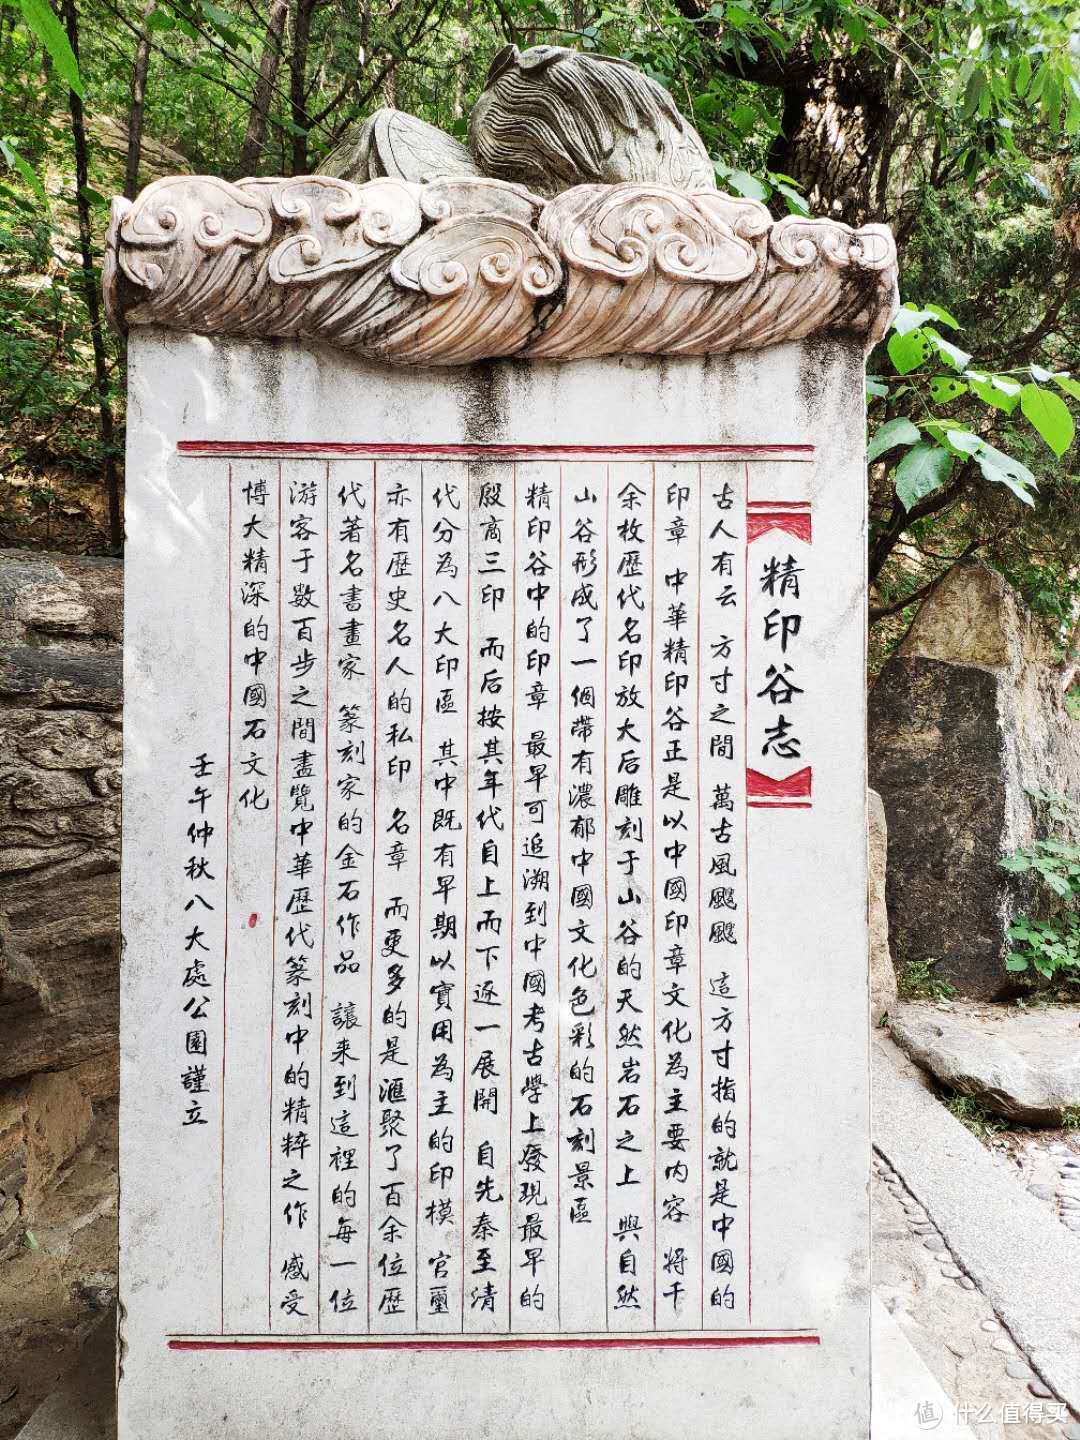 精印谷志
古人有云 方寸之間 萬古風飕飕 這方寸指的就是中國的
印章 中華精印谷正是以中國印章文化為主要内容 将千
余枚歷代名印放大后雕刻于山谷的天然岩石之上 與自然
山谷形成了一個带有濃郁中國文化色彩的石刻景區
精印谷中的印章 最早可追溯到中國考古學上發現最早的
殷商三印 而后按其年代自上而下逐一展開 自先秦至清
代分為八大印區 其中既有早期以實用為主的印模 官璽
亦有歷史名人的私印 名章 而更多的是滙聚了百余位歷
代著名書畫家 篆刻家的金石作品 讓来到這裡的每一位
游客于數百步之間盡覽中華歷代篆刻中的精粹之作 感受
博大精深的中國石文化
壬午仲秋八大處公園謹立
值 什么值得买